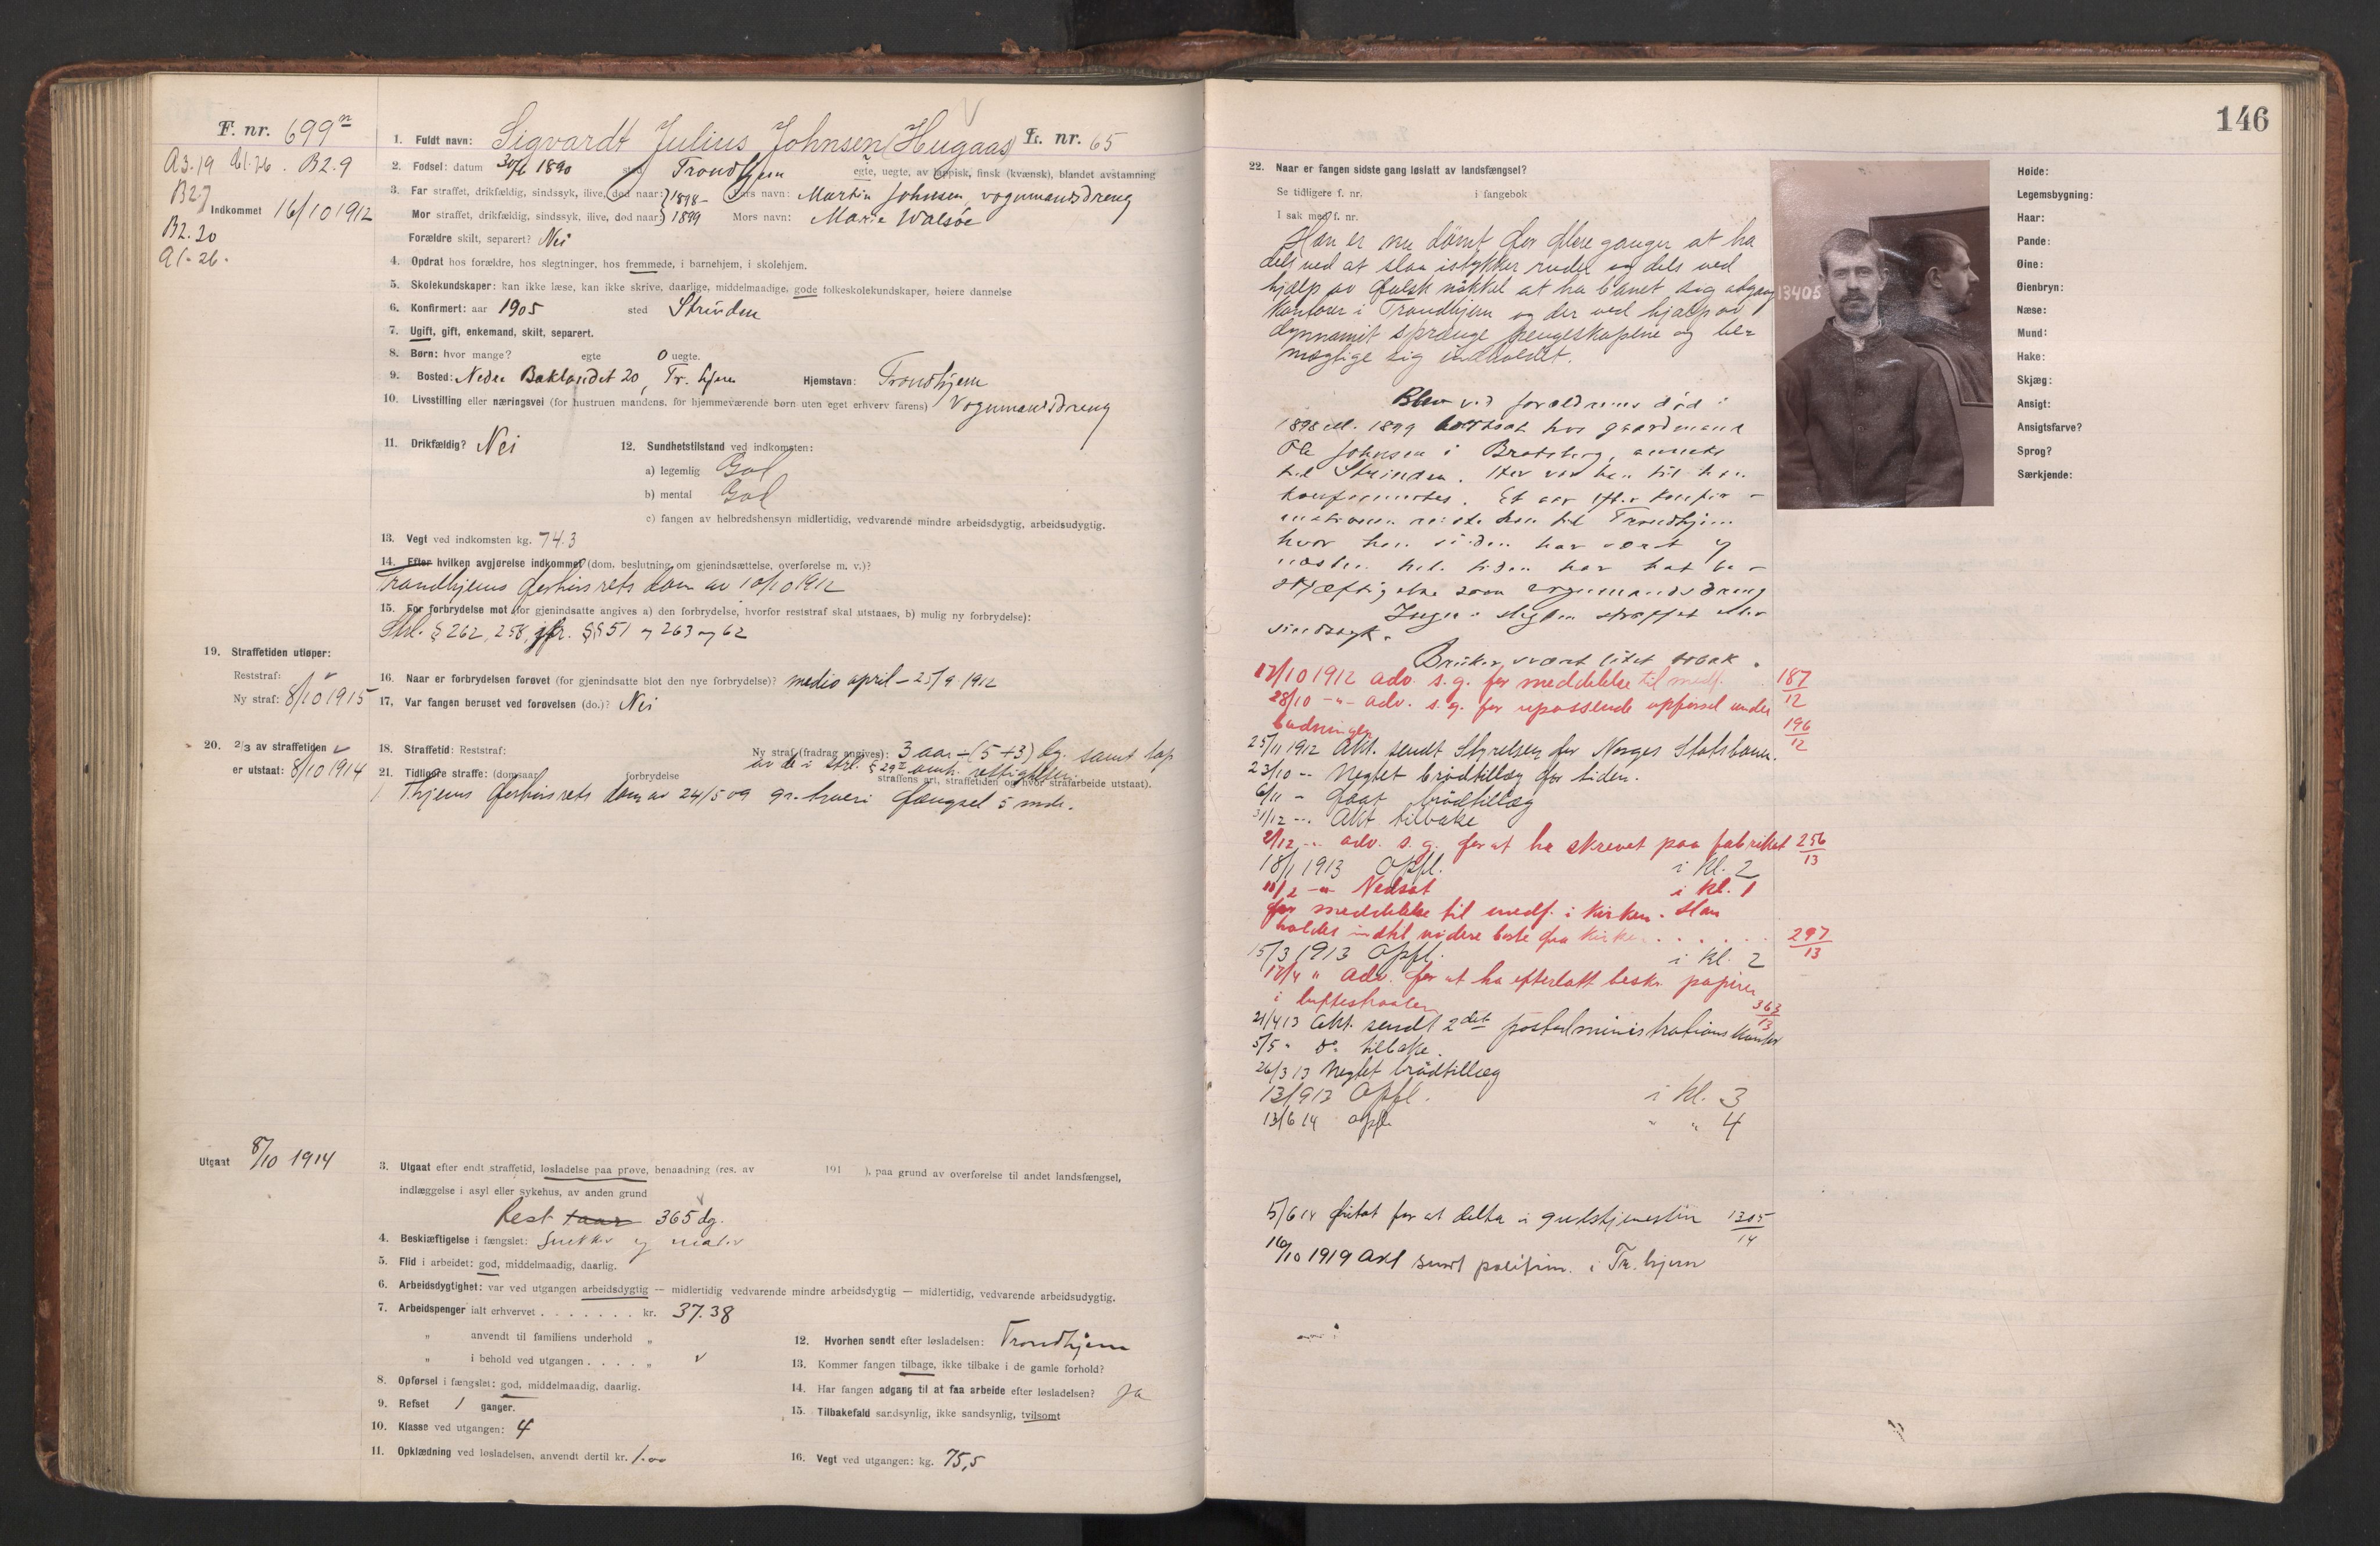 F. nr. 699n
A3.19 A1.26. B2.9
B2.7
Indkommet 16/10 1912
B2.20
A1-26.
1. Fuldt navn: Sigvardt Julius Johnsen (Hugaas) L. nr. 65
2. Fødsel: datum 30/6 1890 sted Trondhjem egte, uegte, av lappisk, finsk (kvænsk), blandet avstamning
3. Far straffet, drikfældig, sindssyk, ilive, død naar: 1898- Fars navn: Martin Johnsen, vognmandsdreng
Mor straffet, drikfældig, sindssyk, ilive, død naar: 1899 Mors navn: Marie Walsöe
Forældre skilt, separert? Nei
4. Opdrat hos forældre, hos slegtninger, hos fremmede, i barnehjem, i skolehjem.
5. Skolekundskaper: kan ikke læse, kan ikke skrive, daarlige, middelmaadige, gode folkeskolekundskaper, høiere dannelse
6. Konfirmert: aar 1905 sted Strinden
7. Ugift, gift, enkemand, skilt, separert.
8. Børn: hvor mange? egte 0 uegte.
9. Bosted: Nedre Baklandet 20, Tr. hjem Hjemstavn: Trondhjem
10. Livsstilling eller næringsvei (for hustruen mandens, for hjemmeværende børn uten eget erhverv farens) Vognmandsdreng
11. Drikfældig? Nei 12. Sundhetstilstand ved indkomsten:
a) legemlig God
b) mental God
c) fangen av helbredshensyn midlertidig, vedvarende mindre arbeidsdygtig, arbeidsudygtig.
13. Vegt ved indkomsten kg. 74.3
14. Efter hvilken avgjørelse indkommet (dom, beslutning om gjenindsættelse, overførelse m. v.)?
Trondhjems forhörsrets dom av 10/10 1912
15. For forbrydelse mot (for gjenindsatte angives a) den forbrydelse, hvorfor reststraf skal utstaaes, b) mulig ny forbrydelse):
Strl. § 262, 258, jfr. §§ 51 og 263 og 62
19. Straffetiden utløper:
Reststraf: v
Ny straf: 8/10 1915
16. Naar er forbrydelsen forøvet (for gjenindsatte blot den nye forbrydelse)? medio april - 25/9 1912
17. Var fangen beruset ved forøvelsen (do.)? Nei
20. 2/3 av straffetiden v
er utstaat: 8/10 1914
18. Straffetid: Reststraf: Ny straf (fradrag angives): 3 aar ÷ (5+3) dg. samt tap
av de i strl. § 29 II omh. rettigheter.
21. Tidligere straffe: (domsaar, forbrydelse straffens art, straffetiden og hvor strafarbeide utstaat).
1 Thjems forhörsrets dom av 24/5 09 gr. tyveri fængsel 5 mdr.
Utgaat 8/10 1914
3. Utgaat efter endt straffetid, løsladelse paa prøve, benaadning (res. av 191 ), paa grund av overførelse til andet landsfængsel,
indlæggelse i asyl eller sykehus, av anden grund
Rest 1 aar 365 dg.
4. Beskjæftigelse i fængslet: Snekker og maler
5. Flid i arbeidet: god, middelmaadig, daarlig.
6. Arbeidsdygtighet: var ved utgangen arbeidsdygtig — midlertidig vedvarende mindre arbeidsdygtig — midlertidig, vedvarende arbeidsudygtig.
7. Arbeidspenger ialt erhvervet . . . . . . . kr. 37.38
" anvendt til familiens underhold "
" i behold ved utgangen . . . . " v
8. Opførsel i fængslet: god, middelmaadig, daarlig.
9. Refset 1 ganger.
10. Klasse ved utgangen: 4
11. Opklædning ved løsladelsen, anvendt dertil kr. 1.00
12. Hvorhen sendt efter løsladelsen: Trondhjem
13. Kommer fangen tilbage, ikke tilbake i de gamle forhold?
14. Har fangen adgang til at faa arbeide efter løsladelsen? Ja
15. Tilbakefald sandsynlig, ikke sandsynlig, tvilsomt
16. Vegt ved utgangen: kg. 75,5
146
22. Naar er fangen sidste gang løslatt av landsfængsel?
Se tidligere f. nr. i fangebok
I sak med f. nr.
Han er nu dömt for flere ganger at ha
dels ved at slaa istykker ruder og dels ved
hjælp av falsk nökkel at ha banet sig adgang
kontorer i Trondhjem og der ved hjælp av
dynnamit sprænge pengeskapene og be-
mægtige sig indholdet.
Blev ved forældrenes död i
1898 ell. 1899 bortsat hos gaardmand
Ole Johnsen i Bratsberg, anneks
til Strinden. Her var han til han
konfirmertes. Et aar efter konfir-
mationen reiste han til Trondhjem
hvor han siden har været og
næsten hele tiden har hat be-
skjæftigelse som vognmandsdreng
Ingen i slegten straffet eller
sindssyk.
Bruker svært litet tobak.
17/10 1912 adv. s. g. for meddelelse til medf. 187/12
28/10 -"- adv. s. g. for upassende opförsel under
badningen 196/12
25/11 1912 Akt. sendt Styrelsen for Norges Statsbaner.
23/10 -- Negtet brödtillæg for tiden.
6/11 - faat brödtillæg
31/12 -- Akt tilbake
2/12 -- adv. s. g. for at ha skrevet paa fabrikat 256/13
18/1 1913 Opfl. i kl. 2
18/2 -"- Nedsat i kl. 1
for meddelelse til medf. i kirken. Han
holdes indtil videre borte fra kirken . . . . . 297/13
15/3 1913 Opfl. i kl. 2
17/4 " adv. for at ha efterlatt beskr. papirer
i luftestraalen 363/13
21/4 13 Akt. sendt 2det postadministrations kontor
5/5 " do tilbake.
26/3 13 Negtet brödtillæg
13/913 Opfl. i kl. 3
13/6 14 opfl. " " 4
5/6 14 fritat for at delta i gudstjenesten 1305/14
16/10 1919 Akt sendt politim. i Tr. hjem
13405
Høide:
Legemsbygning:
Haar:
Pande:
Øine:
Øienbryn:
Næse:
Mund:
Hake:
Skjæg:
Ansigt:
Ansigtsfarve?
Sprog?
Særkjende: